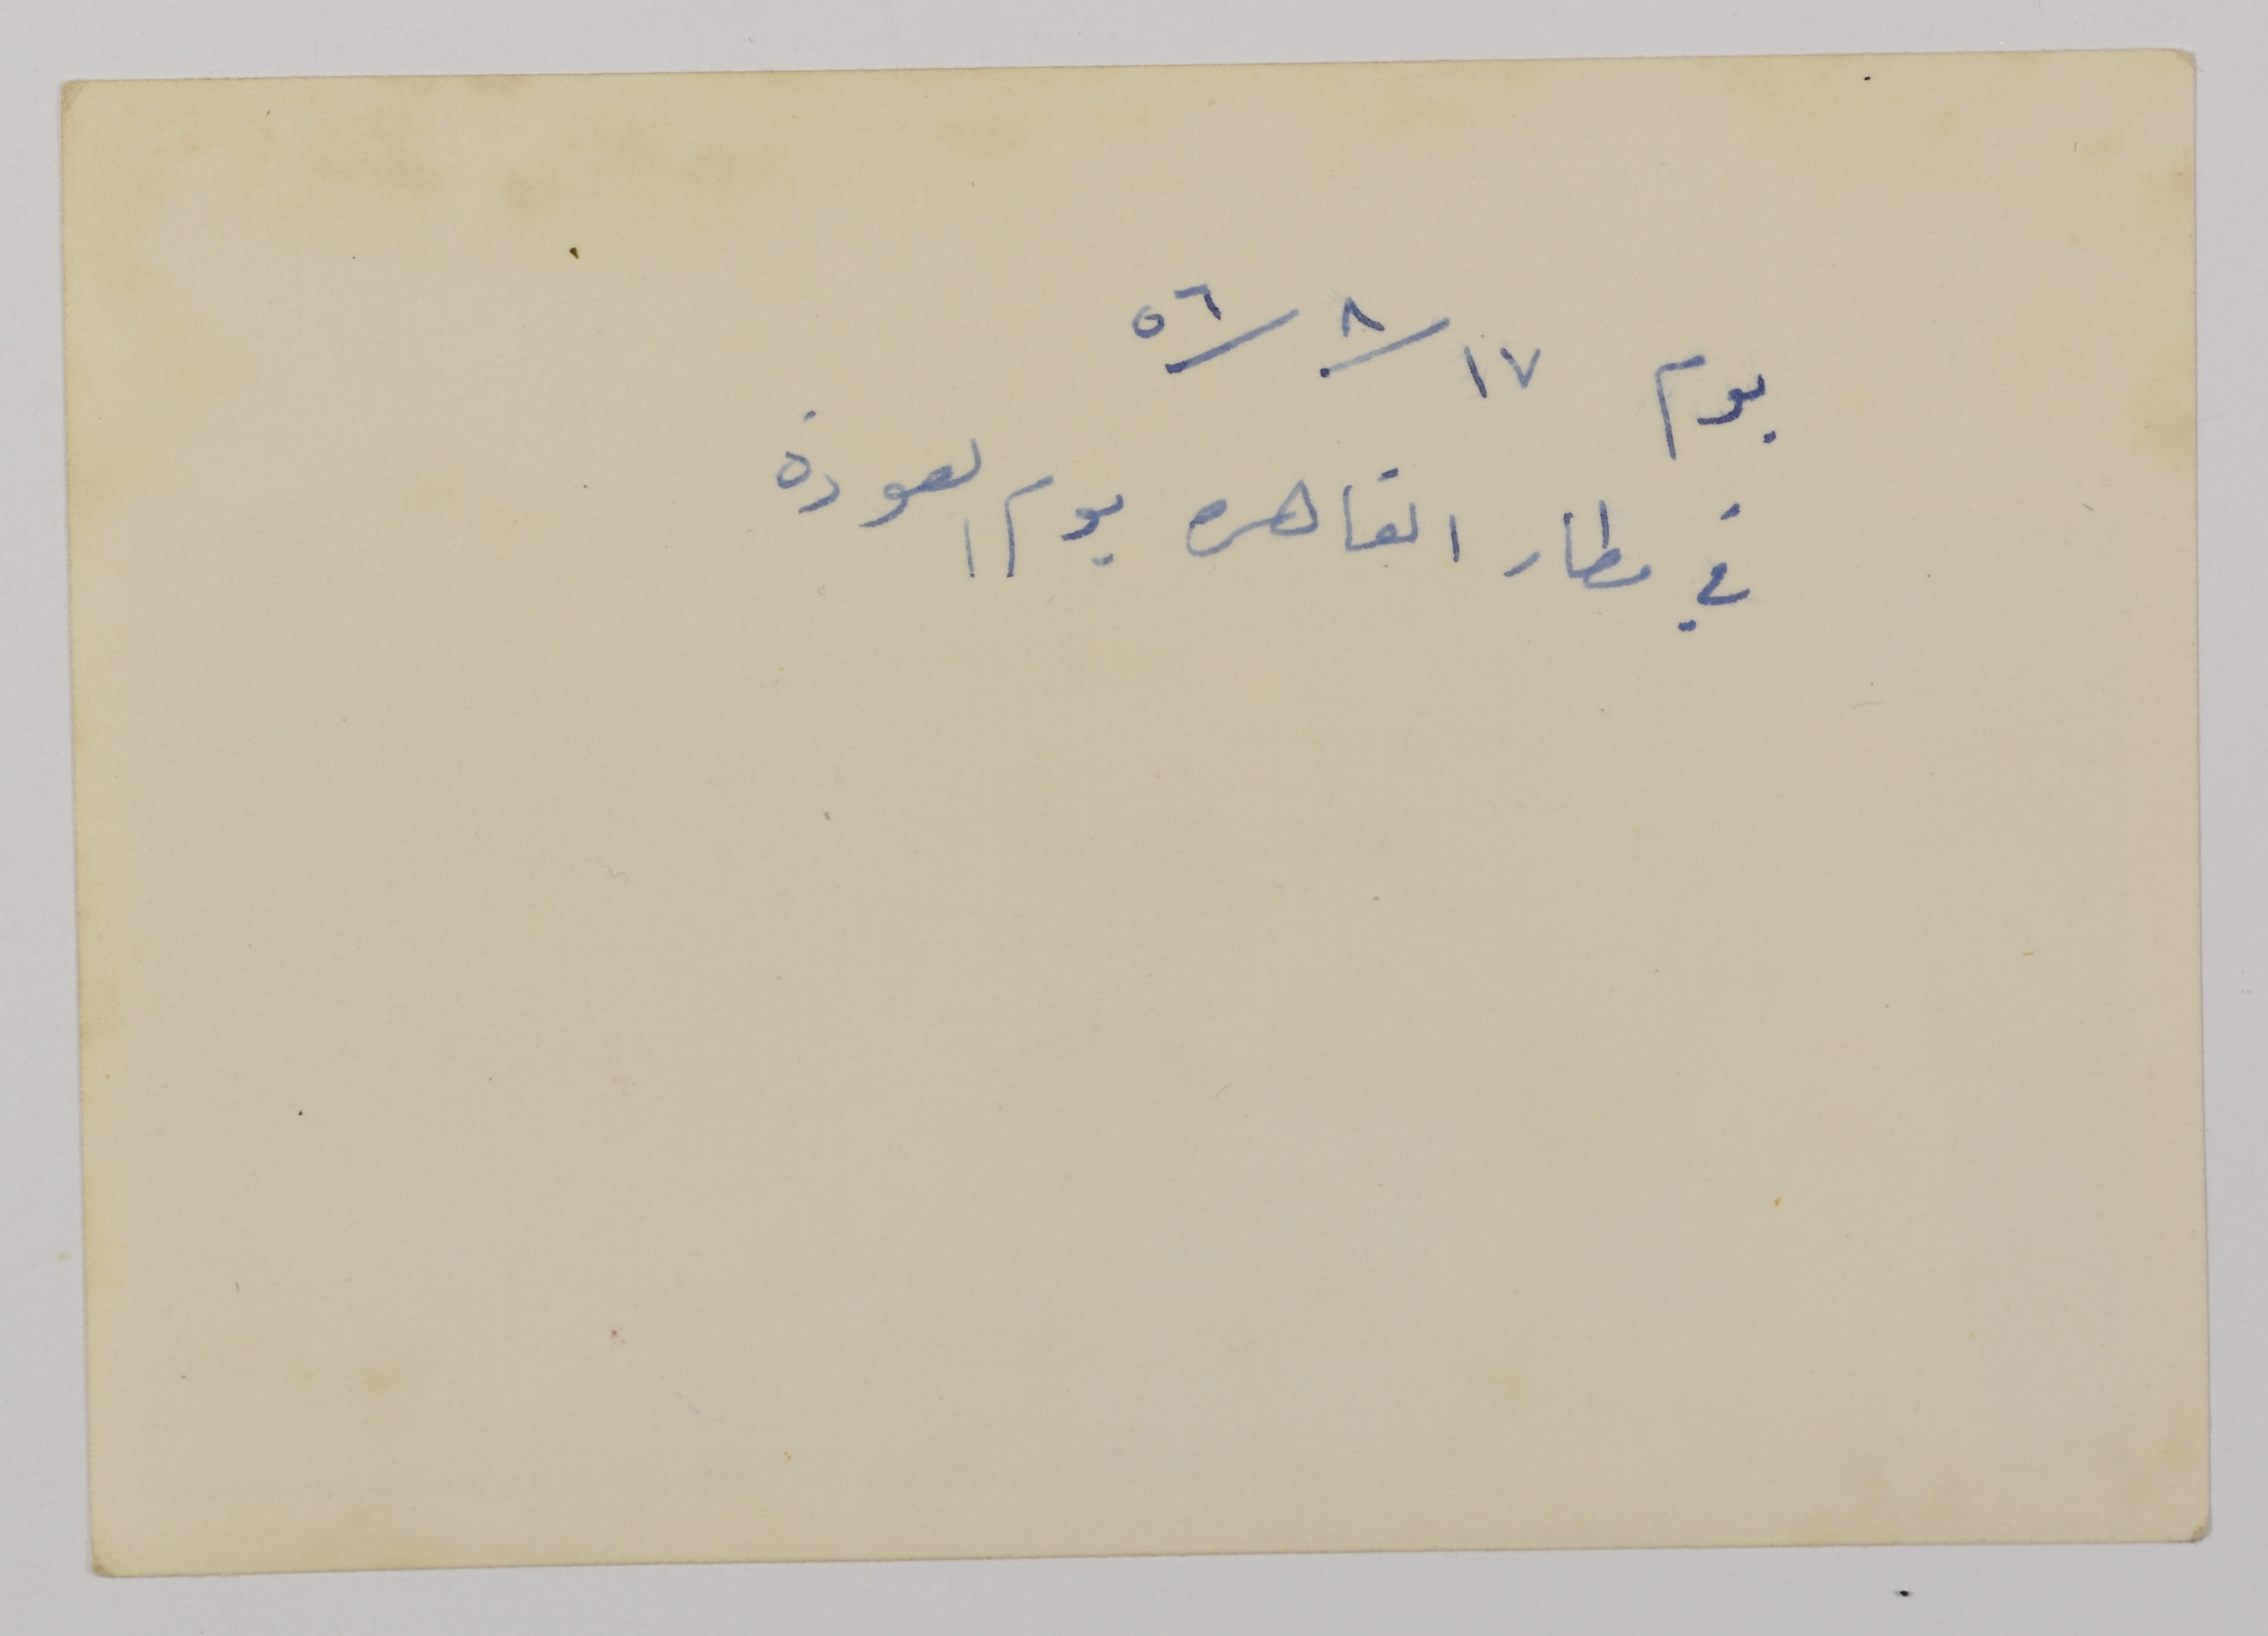 يوم ١٧/٨/٥٦
في مطار القاهره يوم العودة